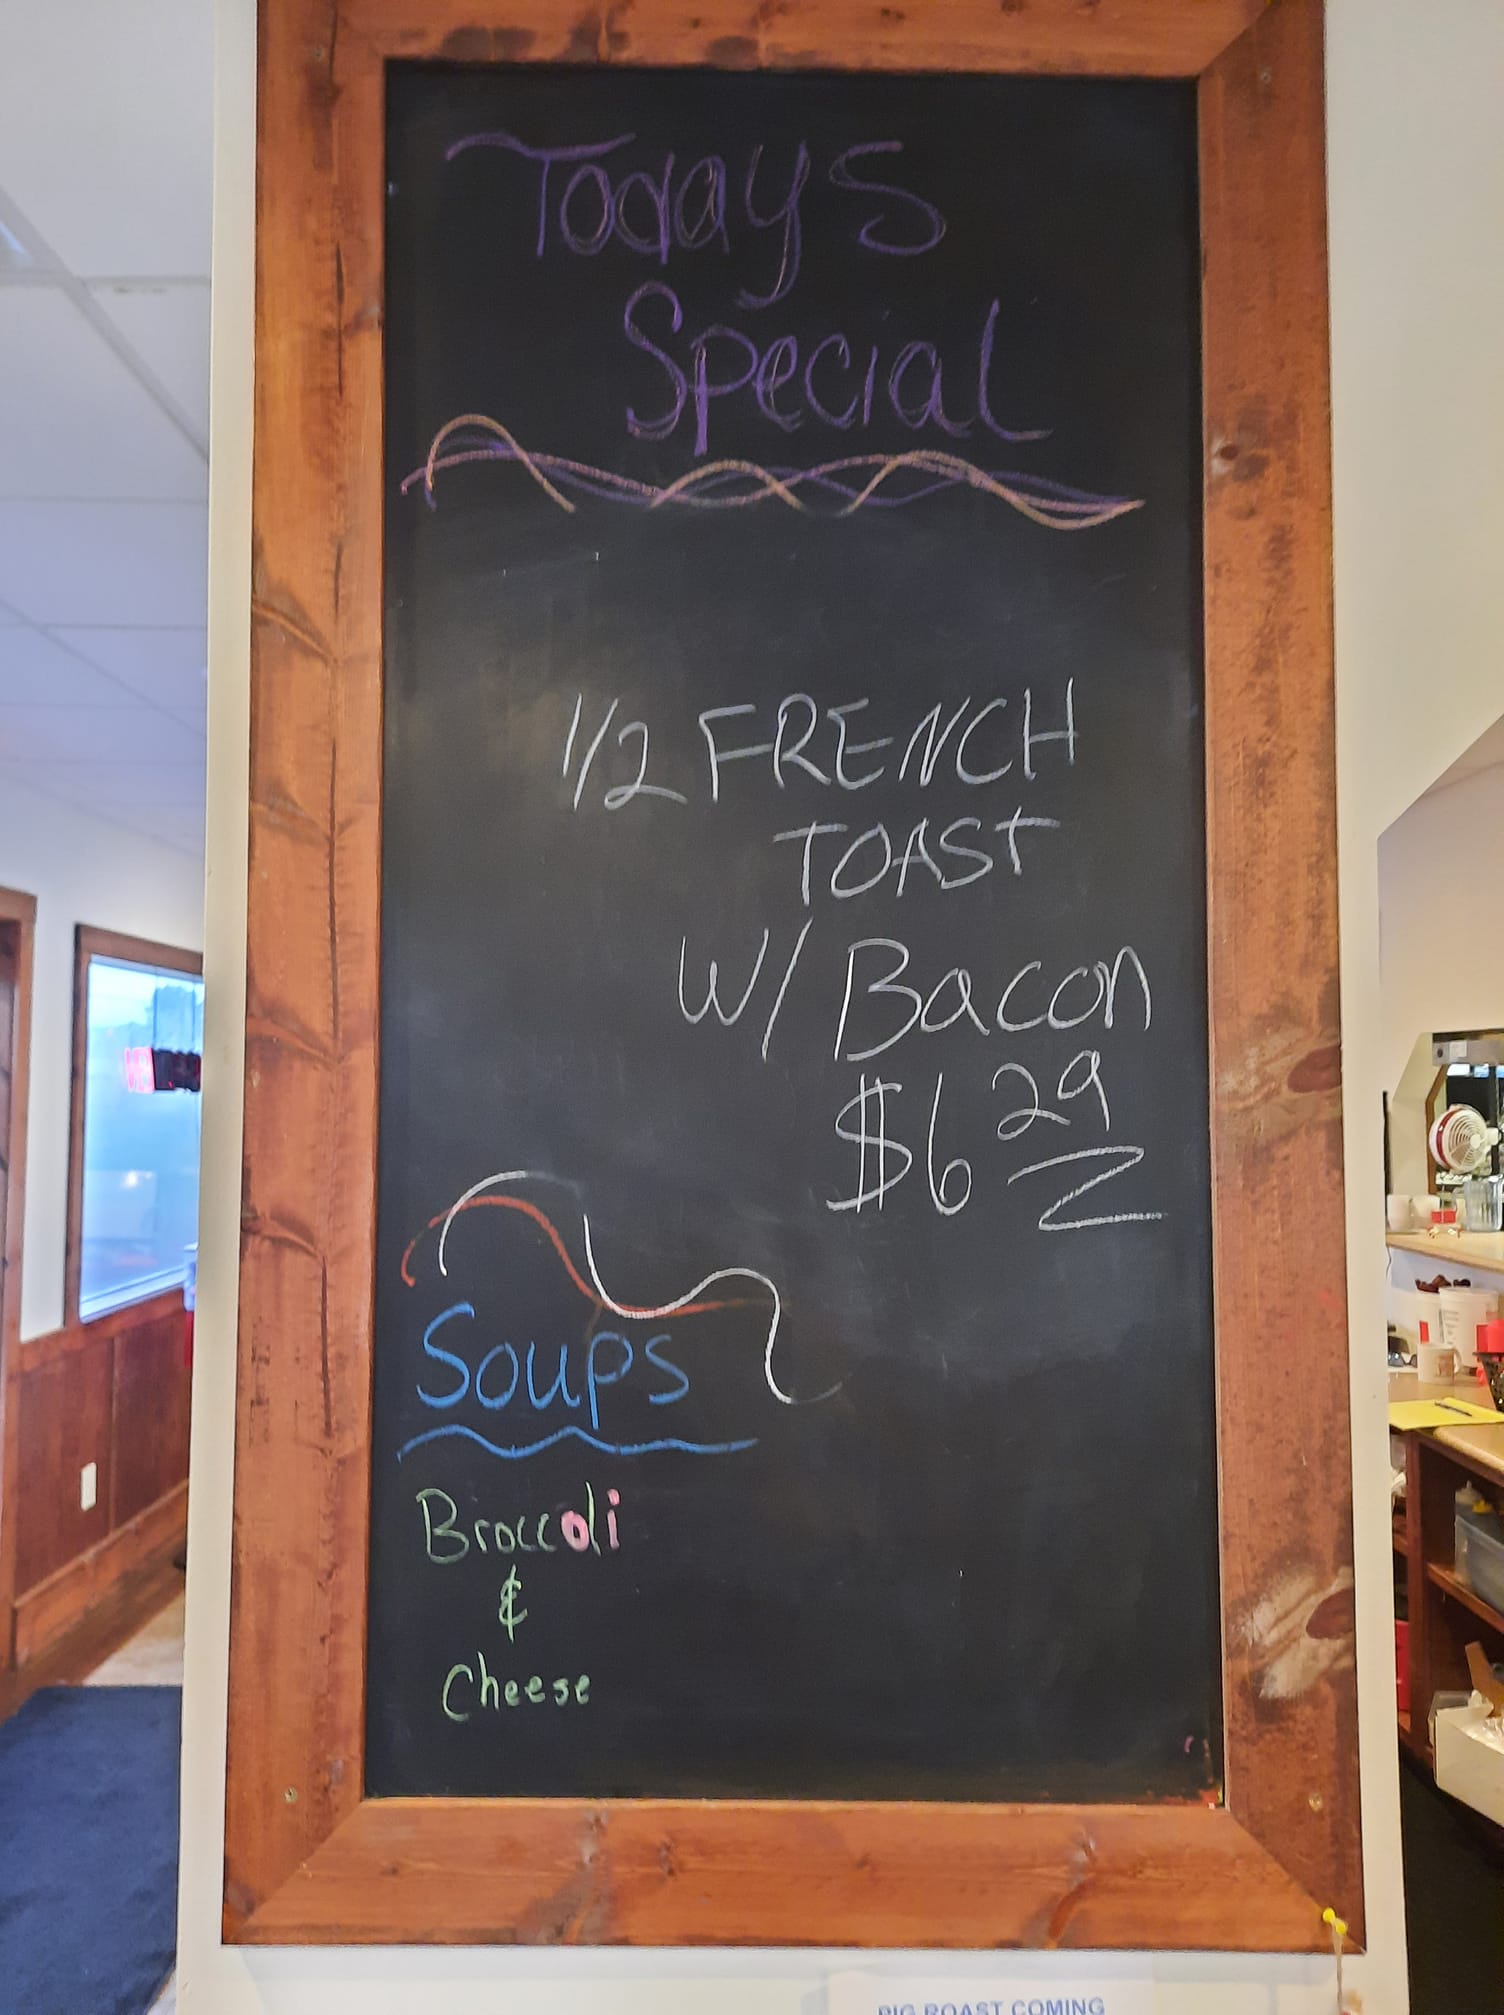 Todays
Special
1/2 FRENCH
TOAST
W/ Bacon
$6 29
Soups
Broccoli
&
Cheese
PIG ROAST COMING